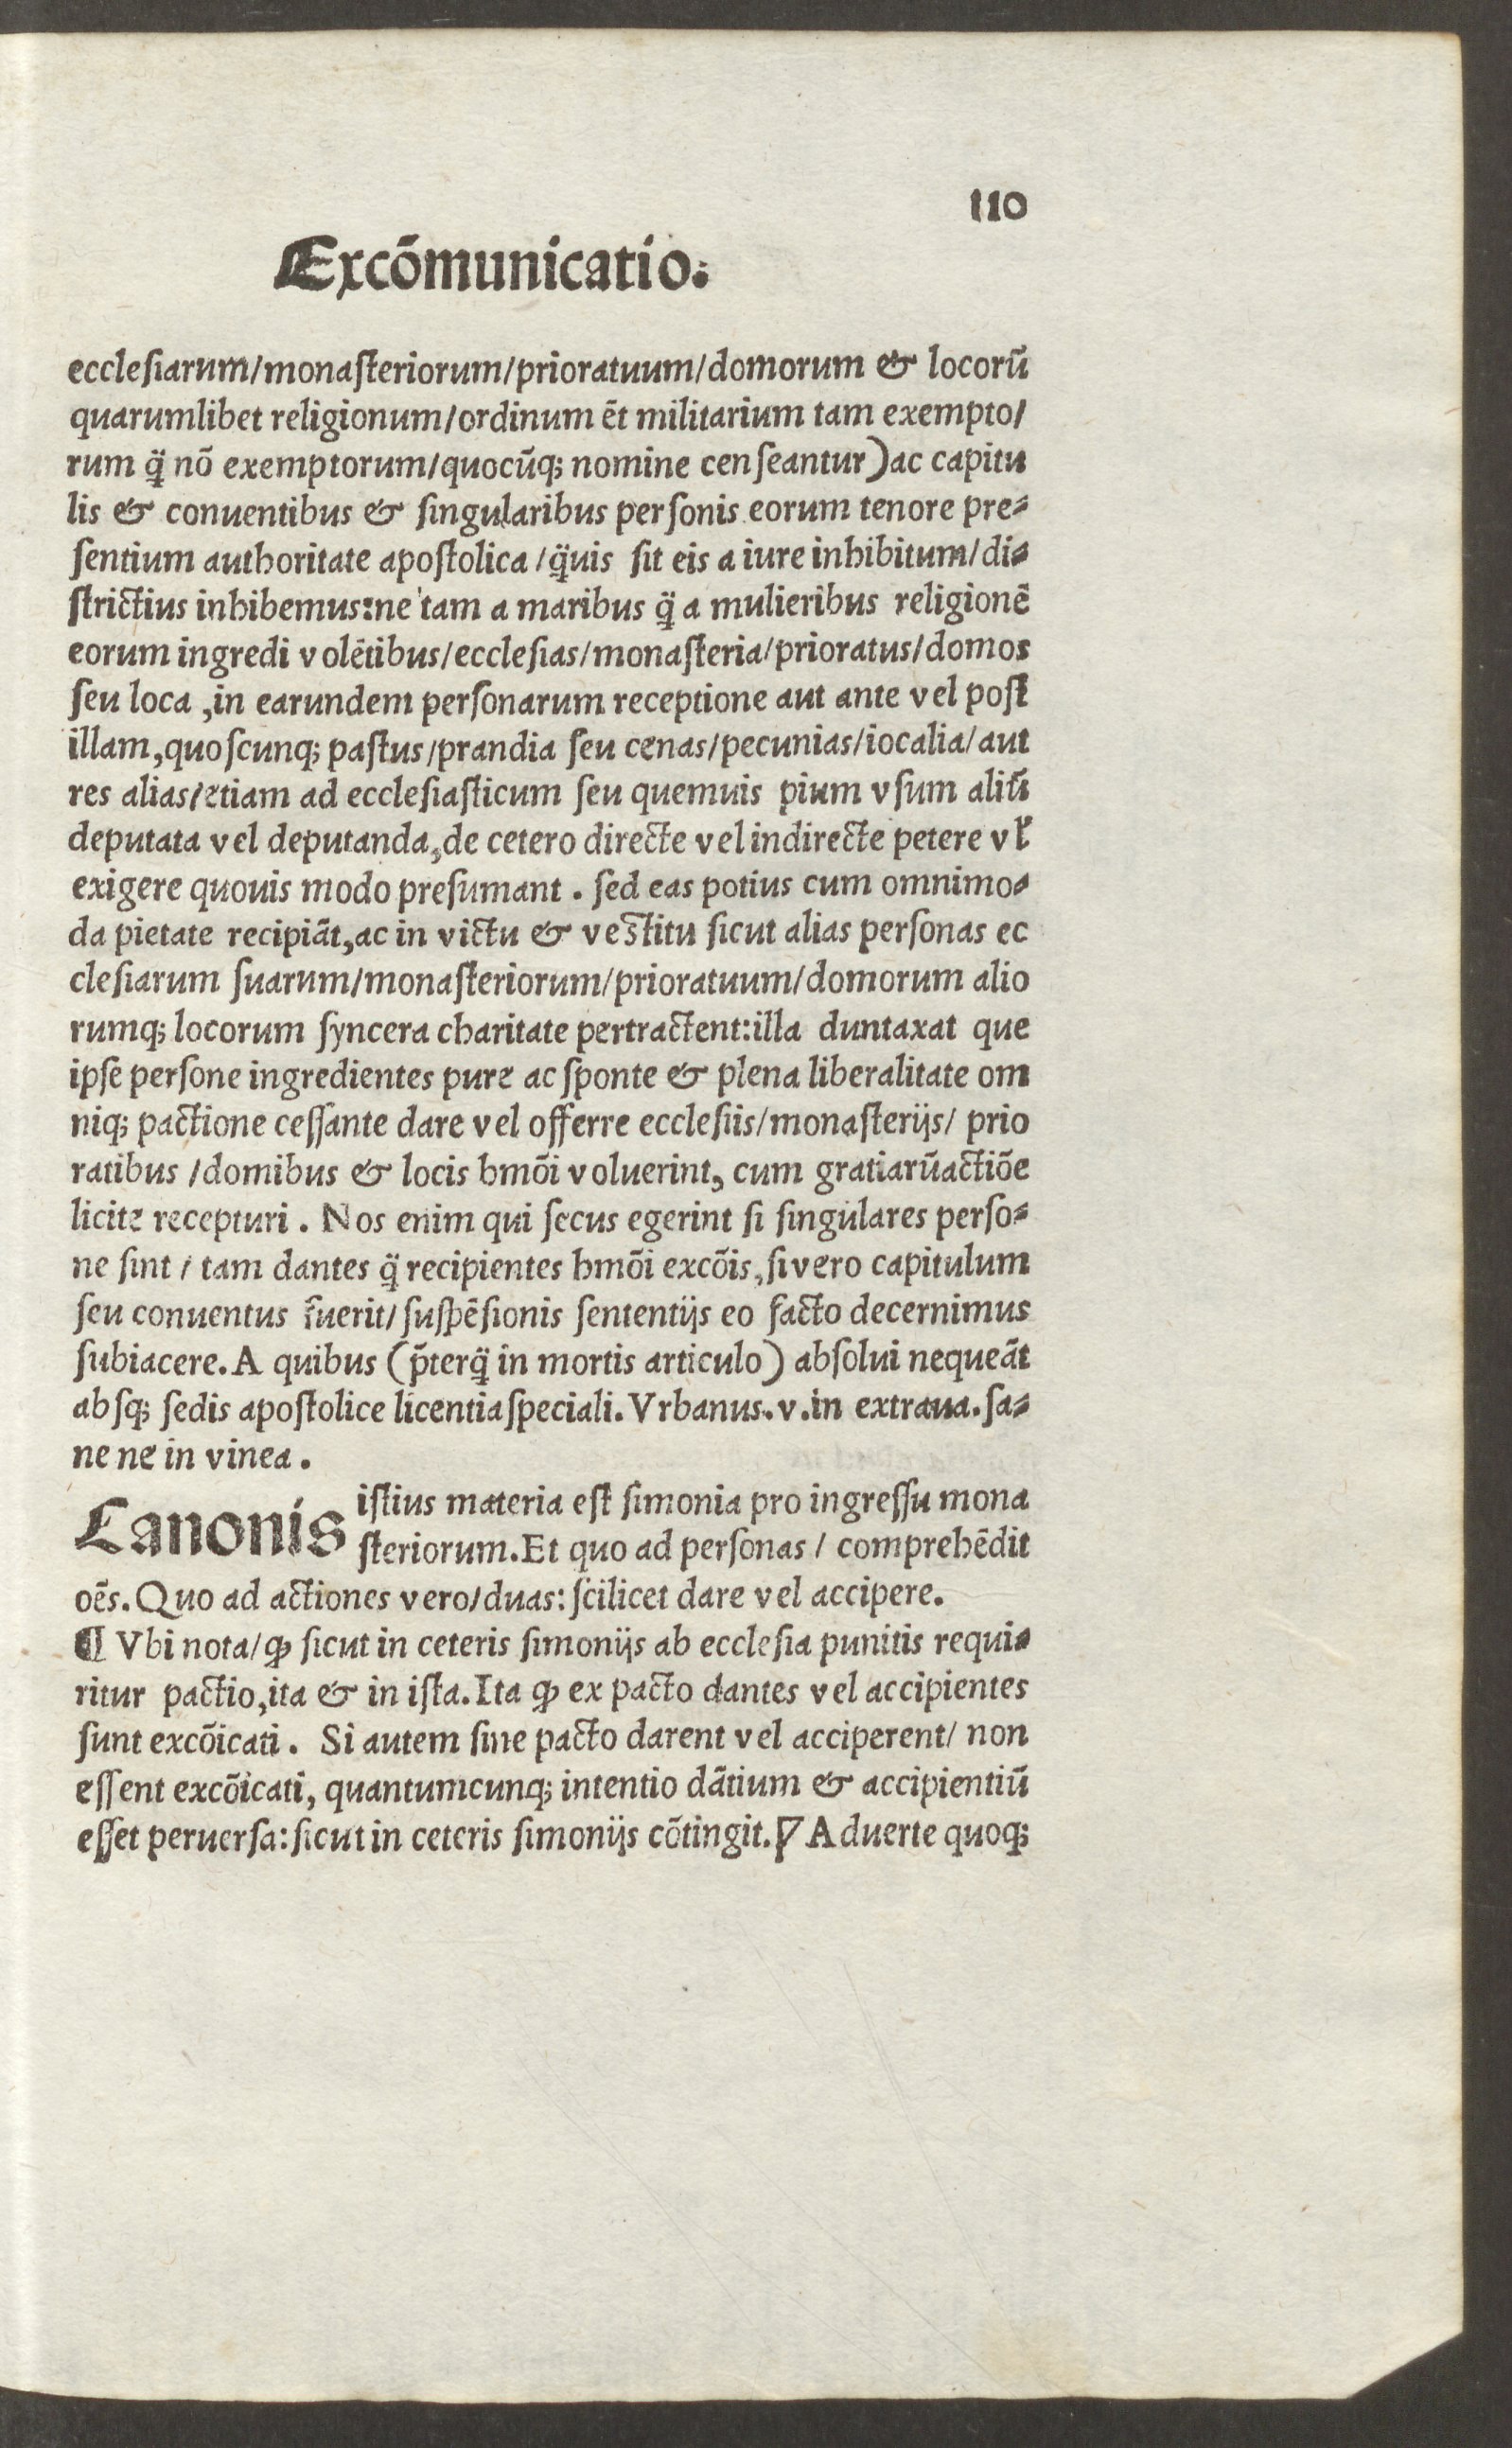 110
Excõmunicatio.
eccleſiarum/monaſteriorum/prioratuum/domorum & locorũ
quarumlibet religionum/ordinum ēt militarium tam exempto/
rum q̈̃ nõ exemptorum/quocũq; nomine cenſeantur)ac capitu
lis & conuentibus & ſingularibus perſonis eorum tenore pre⸗
ſentium authoritate apoſtolica/q̈̃uis ſit eis a iure inhibitum/di⸗
ſtrictius inhibemus:ne tam a maribus q̈̃ a mulieribus religionẽ
eorum ingredi volẽtibus/eccleſias/monaſteria/prioratus/domos
ſeu loca ,in earundem perſonarum receptione aut ante vel poſt
illam,quoſcunq; paſtus/prandia ſeu cenas/pecunias/iocalia/aut
res alias/etiam ad eccleſiaſticum ſeu quemuis pium vſum aliũ
deputata vel deputanda,de cetero directe vel indirecte petere vl̃
exigere quouis modo preſumant . ſed eas potius cum omnimo⸗
da pietate recipiãt,ac in victu & veſtitu ſicut alias perſonas ec
cleſiarum ſuarum/monaſteriorum/prioratuum/domorum alio
rumq; locorum ſyncera charitate pertractent:illa duntaxat que
ipſe perſone ingredientes pure ac ſponte & plena liberalitate om
niq; pactione ceſſante dare vel offerre eccleſiis/monaſterijs/ prio
ratibus /domibus & locis hmõi voluerint, cum gratiarũactiõe
licite recepturi . Nos enim qui ſecus egerint ſi ſingulares perſo⸗
ne ſint / tam dantes q̈̃ recipientes hmõi excõis,ſi vero capitulum
ſeu conuentus fuerit/ ſuſpẽſionis ſententijs eo facto decernimus
ſubiacere. A quibus (p̃terq̈̃ in mortis articulo) abſolui nequeãt
abſq; ſedis apoſtolice licentia ſpeciali. Vrbanus.v.in extraua.ſa⸗
ne ne in vinea .
Canonis iſtius materia eſt ſimonia pro ingreſſu mona
ſteriorum.Et quo ad perſonas / comprehẽdit
oẽs.Quo ad actiones vero/duas: ſcilicet dare vel accipere.
¶ Vbi nota/ꝙ ſicut in ceteris ſimonijs ab eccleſia punitis requi⸗
ritur pactio,ita & in iſta.Ita ꝙ ex pacto dantes vel accipientes
ſunt excõicati . Si autem ſine pacto darent vel acciperent/ non
eſſent excõicati, quantumcunq; intentio dãtium & accipientiũ
eſſet peruerſa:ſicut in ceteris ſimonijs cõtingit.∇ Aduerte quoq;